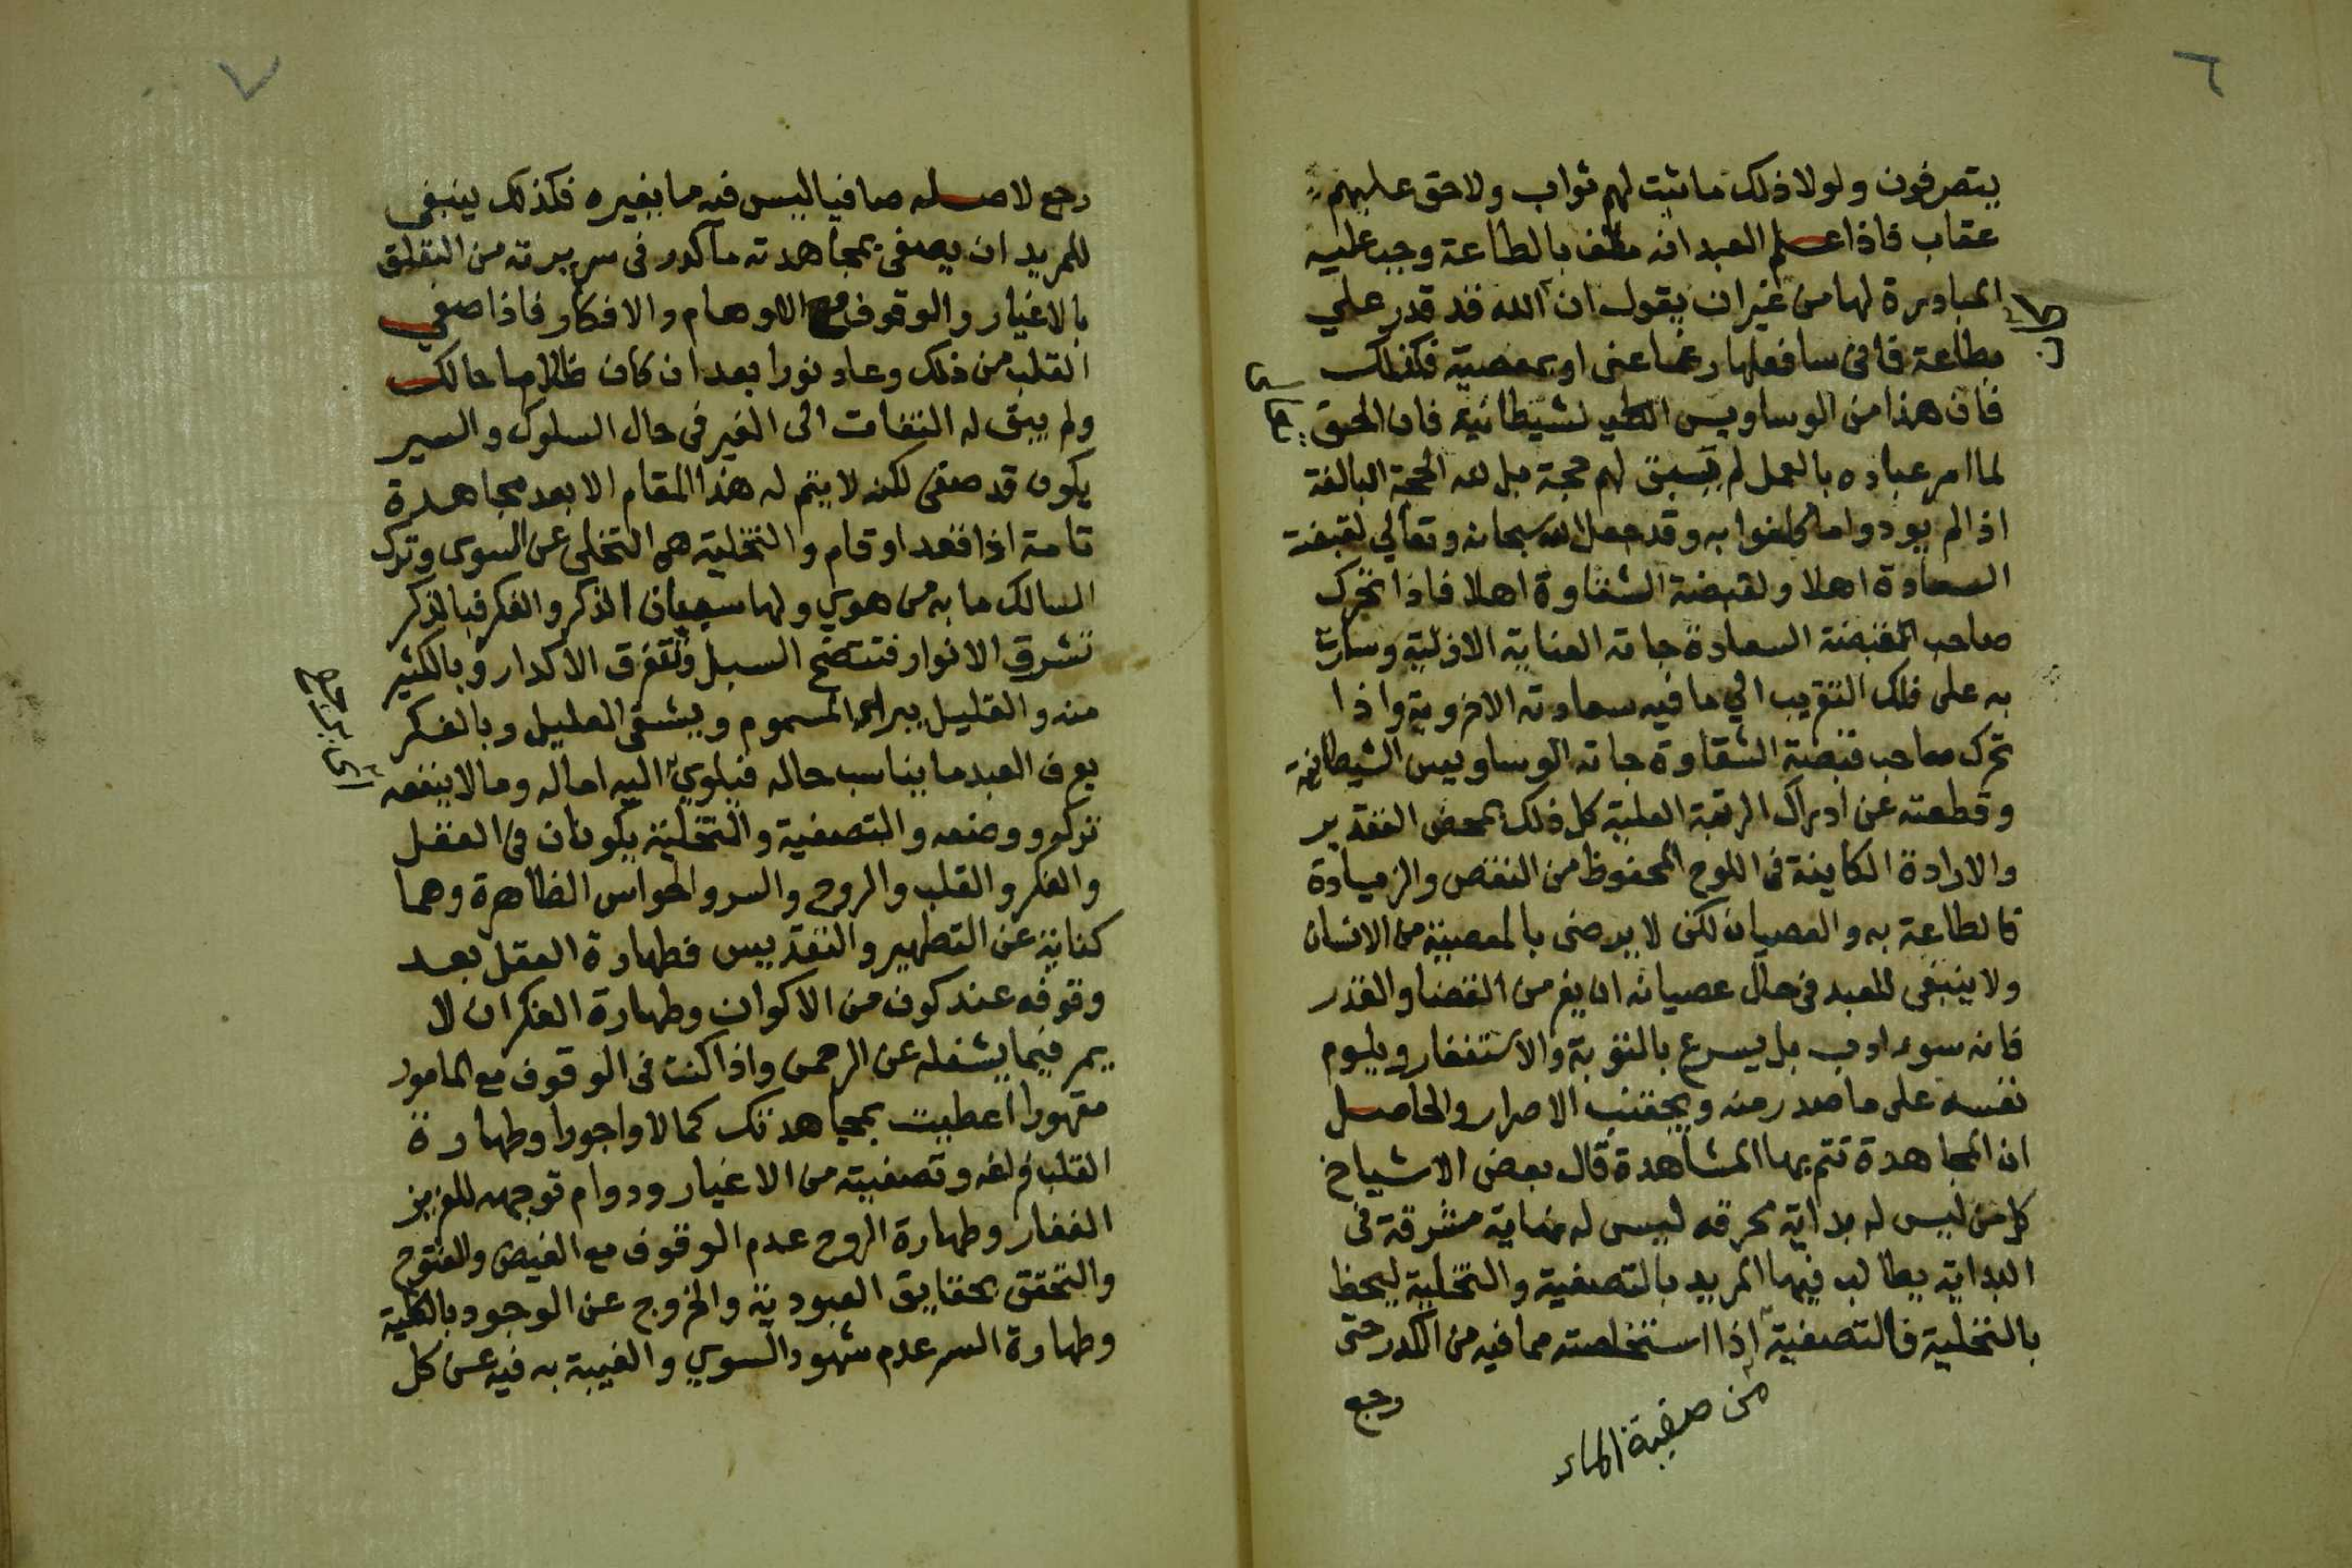 ٦
يتصرفون ولولا ذلك ما ثبت لهم ثواب ولا حق عليهم
عقاب فاذا علم العبد انه مكلف بالطاعة وجب عليه
المبادرة لها من غير ان يقول ان الله قد قدر علي
بطاعة فانى سافعلها رغما عنى او بمعصية فكذلك
فان هذا من الوساويس الشيطانية فان الحق
لما امر عباده بالعمل لم يبق لهم حجة بل لله الحجة البالغة
اذا لم يودوا ما كلفوا به وقد جعل الله سبحانه وتعالي لقبضة
السعادة اهلا ولقبضة الشقاوة اهلا فاذا تحرك
صاحب القبضة السعادة جاته العناية الازلية وسارت
به على فلك التقريب الي ما فيه سعادته الاخروية واذا
تحرك صاحب قبضة الشقاوة جاته الوساويس الشيطانية
وقطعته عن ادراك الرتبة العلية كل ذلك بمحض التقدير
والارادة الكاينة فى اللوح المحفوظ من النقص والزيادة
فالطاعة به والعصيان لكن لا يرضى بالمعصية من الانسان
ولا ينبغى للعبد فى حال عصيانه ان يفر من القضا والقدر
فانه سوء ادب بل يسرع بالتوبة والاستغفار ويلوم
نفسه على ما صدر منه ويجتنب الاصرار والحاصل
ان المجاهدة تتم بها المشاهدة قال بعض الاشياخ
كل من ليس له بداية محرقه ليس له نهاية مشرقة فى
البداية يطالب فيها المريد بالتصفية والتخلية ليحظ
بالتخلية فالتصفية اذا استخلصته مما فيه من الكدر حتى
من صفية الماء
رجع
٧
رجع لاصله صافيا ليس فيه ما يغيره فكذلك ينبغى
للمريد ان يصفى بمجاهدته ما كدر فى سريرته من التعلق
بالاغيار والوقوف مع الاوهام والافكار فاذا صفى
القلب من ذلك وعاد نورا بعد ان كان ظلاما حالك
ولم يبق له التفات الى الغير فى حال السلوك والسير
يكون قد صفى لكن لا يتم له هذا المقام الا بعد مجاهدة
تامة اذا قعد او قام والتخلية هى التخلى عن السوى وترك
السالك ما به من هوي ولها سببان الذكر والفكر فبالذكر
تشرق الانوار فتتضح السبل وتفرق الاكدار وبالكثير
منه والقليل يبراء المسموم ويشفى العليل وبالفكر
يعرف العبد ما يناسب حاله فيلوي اليه اماله وما لا ينفعه
تركه ووضعه والتصفية والتخلية يكونان فى العقل
والفكر والقلب والروح والسر والحواس الظاهرة وهما
كناية عن التطهير والتقديس فطهارة العقل بعد
وقوفه عند كون من الاكوان وطهارة الفكر ان لا
يمر فيما يشغله عن الرحمن واذا كنت فى الوقوف مع المامور
مقهورا اعطيت بمجاهدتك كمالا واجورا وطهارة
القلب فراغه وتصفيته من الاغيار ودوام توجهه للعزيز
الغفار وطهارة الروح عدم الوقوف مع الفيض والفتوح
والتحقق بحقايق العبودية والخروج عن الوجود بالكلية
وطهارة السر عدم شهود السوي والغيبة به فيه عن كل